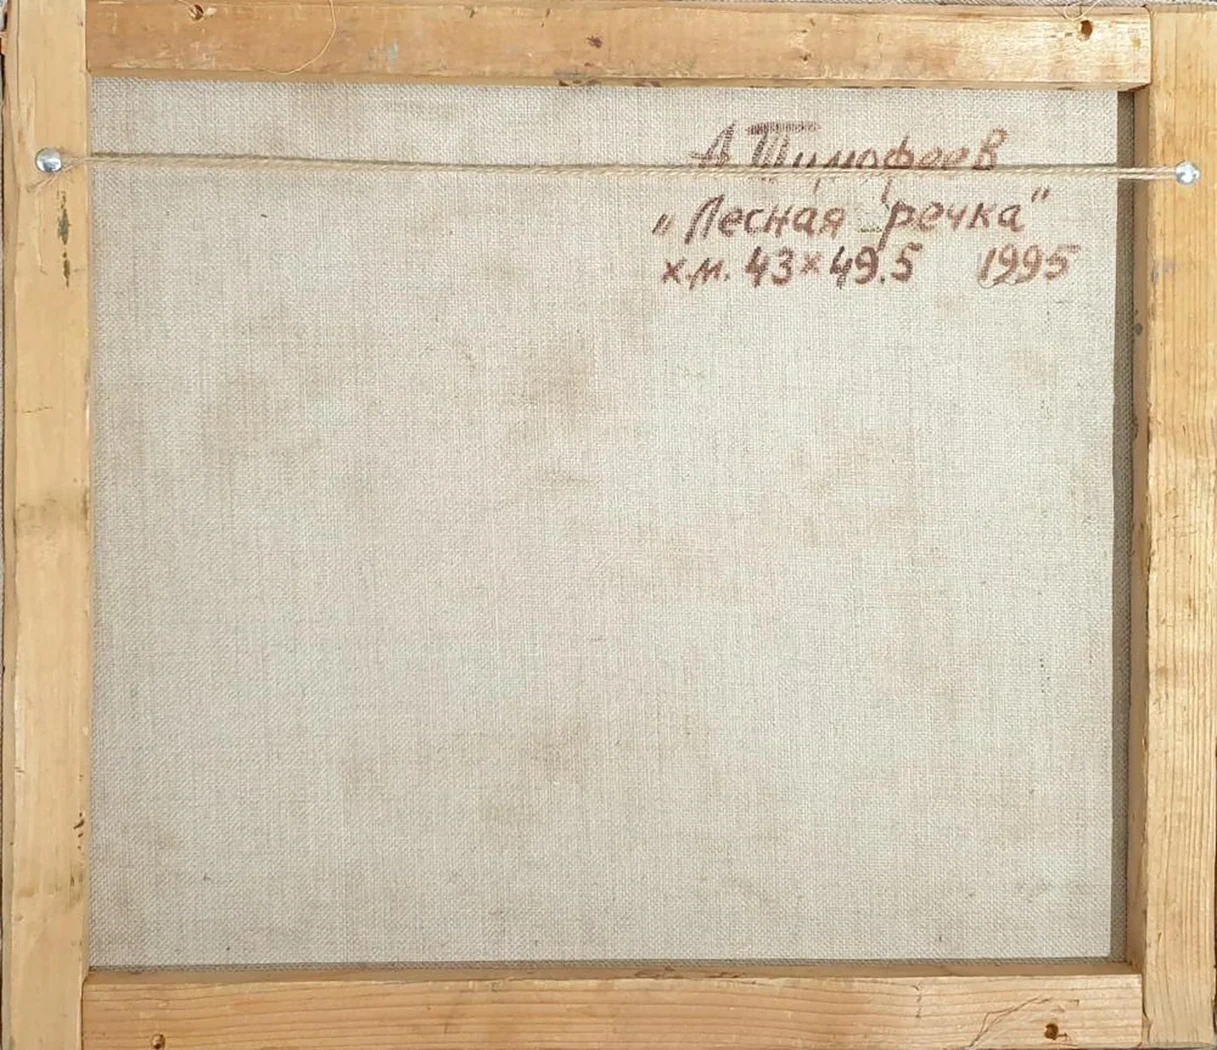 А Тимофеев
„Лесная речка"
х.м. 43×49.5 1995